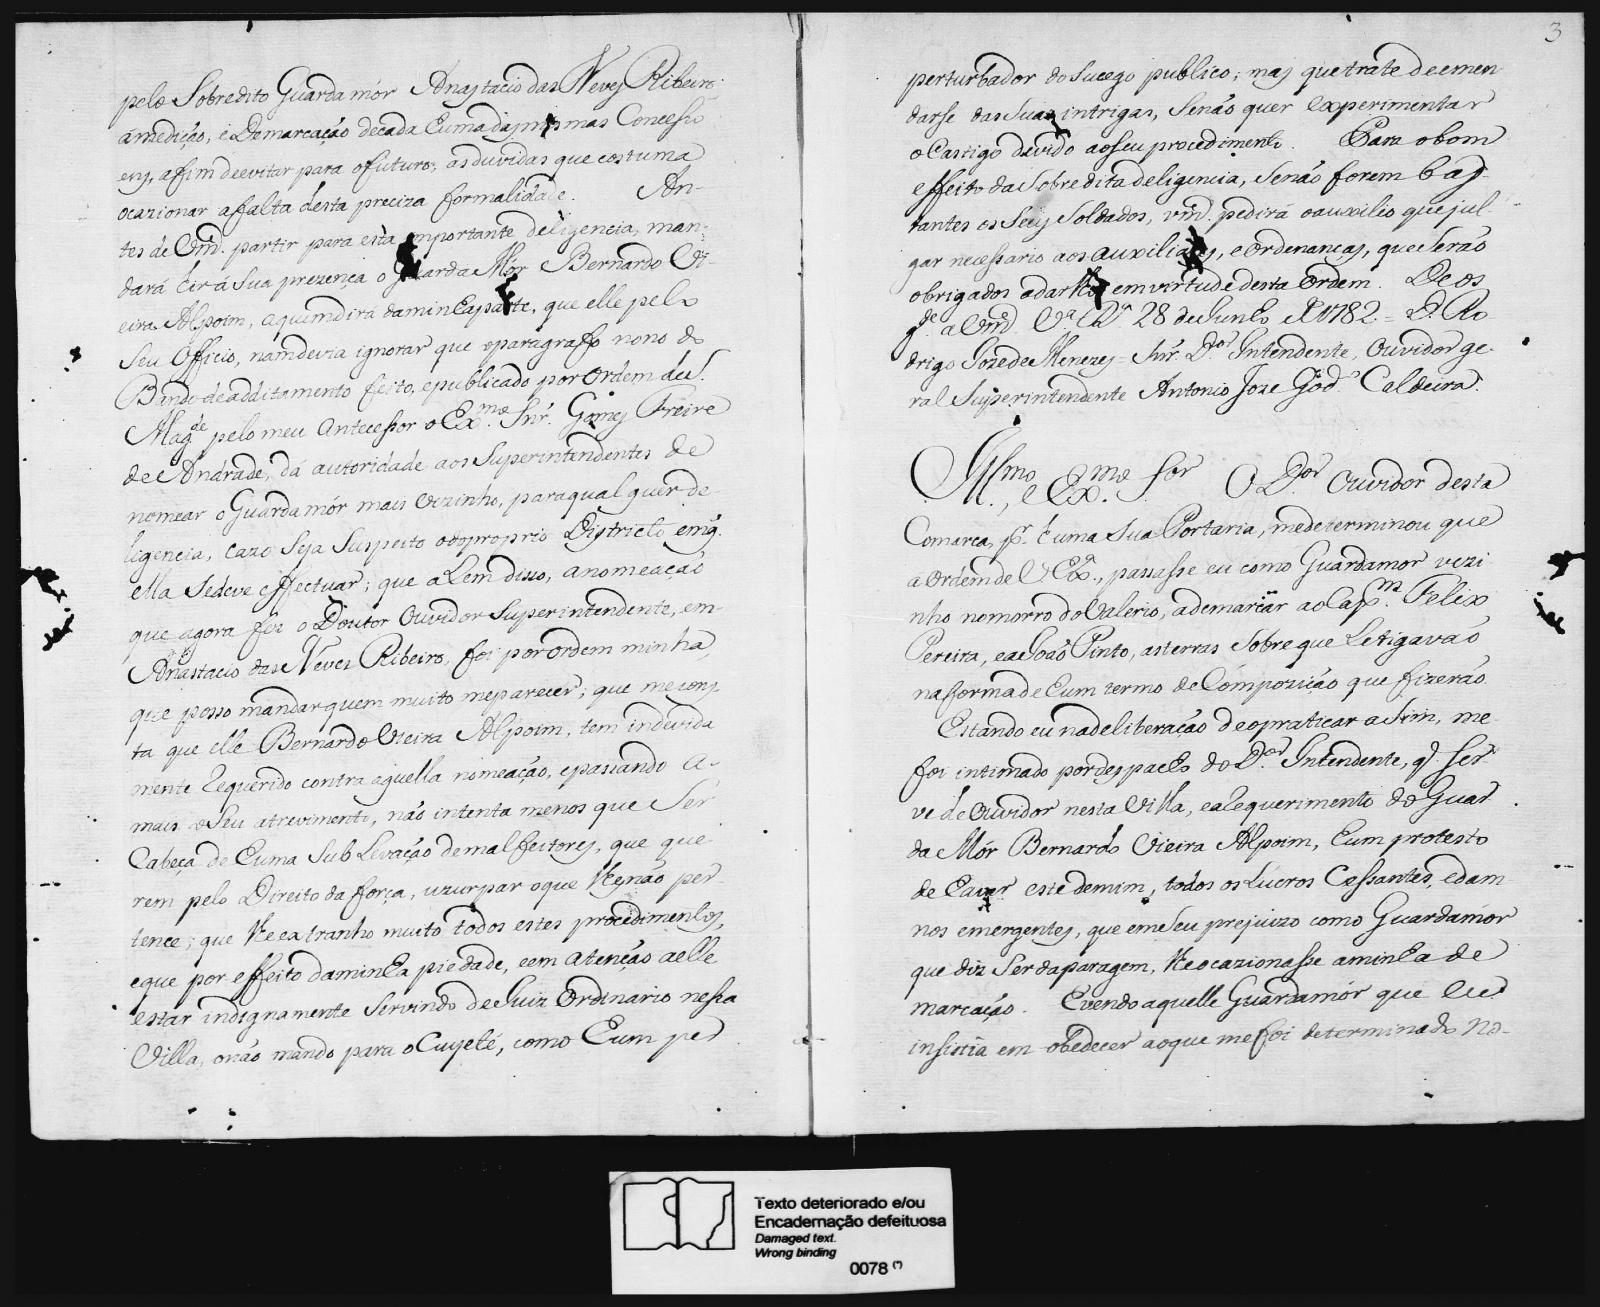 pelo Sobredito Guarda mór Anastacio das Neves Ribeiro
amedição, e Demarcação decada huma das mas Concesso
ens, afim deevitar para ofuturo, asduvidas que costuma
ocazionar afalta desta preciza formalidade. An-
tes de Vmd. partir para esta importante deligencia, man-
dará vir á Sua prezença o Guarda Mór Bernardo Vi-
eira Alpoim, aquemdirá daminha parte, que elle pelo
Seu Officio, namdevia ignorar que oparagrafo nono do
Bando deadditamento feito, epublicado por Ordem deS.
Magde pelo meu Antecessor o Exmo Snr. Gomes Freire
de Andrade, dá autoridade aos Superintendentes de
nomear o Guarda mór mais Vezinho, paraqual quer de-
ligencia, cazo Seja Suspeito odoproprio Districto emq.
ella Sedeve effectuar; que aLem disso, anomeação
que agora fez o Doutor Ouvidor Superintendente, em
Anastacio das Neves Ribeiro, foi porordem minha,
que posso mandar quem muito meparecer; que mecons-
ta que elle Bernardo Vieira Alpoim, tem indevida
mente Requerido contra aquella nomeação, epassando a
mais oSeu atrevimento, não intenta menos que Ser
Cabeça de huma SubLevação demalfeitores, que que
rem pelo Direito da força, uzurpar oque lhenão per
tence; que lhe extranho muito todos estes procedimentos,
eque por effeito daminha piedade, eem atenção aelle
estar indignamente Servindo deJuiz Ordinario nessa
Villa, onão mando para oCuyeté, como hum per
3
perturbador do Sucego publico; mas quetrate deemen
darse das Suas intrigas, Senão quer experimentar
o Castigo devido aoSeu procedimento. Para obom
effeito daSobredita deligencia, Senão forem bas-
tantes os Seus Soldados, vmd. pedirá oauxilio quejul-
gar necessario aos auxiliares, e Ordenanças, queSerão
obrigados adarlho emvirtude desta Ordem. Deos
gde a Vmd. Va Ra 28 deJunho de1782 = D. Ro
drigo Jozede Menezes = Snr. Dor Intendente, Ouvidor ge-
ral Superintendente Antonio Joze God. Caldeira.
Illmo, e Exmo Snr O Dor Ouvidor desta
Comarca, pr. huma Sua Portaria, medeterminou que
a Ordem de V Exa., passasse eu como Guardamor vezi
nho nomorro do Valerio, ademarcar ao Capm. Felix
Pereira, eaJoão Pinto, asterras Sobre que Letigavão
naforma de hum termo de Compozição que fizerão
Estando eu nadeliberação deopraticar aSim, me
foi intimado pordespacho do Dor Intendente, q. Ser
ve de Ouvidor nesta Villa, eaRequerimento do Guar
da Mór Bernardo Vieira Alpoim, hum protesto
de haver este demim, todos os Lucros Cessantes, edam-
nos emergentes, que emSeu prejuizo como Guardamór
que diz Ser daparagem, lheocazionasse aminha de
marcação. Evendo aquelle Guardamór que eu
insistia em obedecer aoque mefoi determinado no-
Texto deteriorado e/ou
Encadernação defeituosa
Damaged text.
Wrong binding
0078 (*)